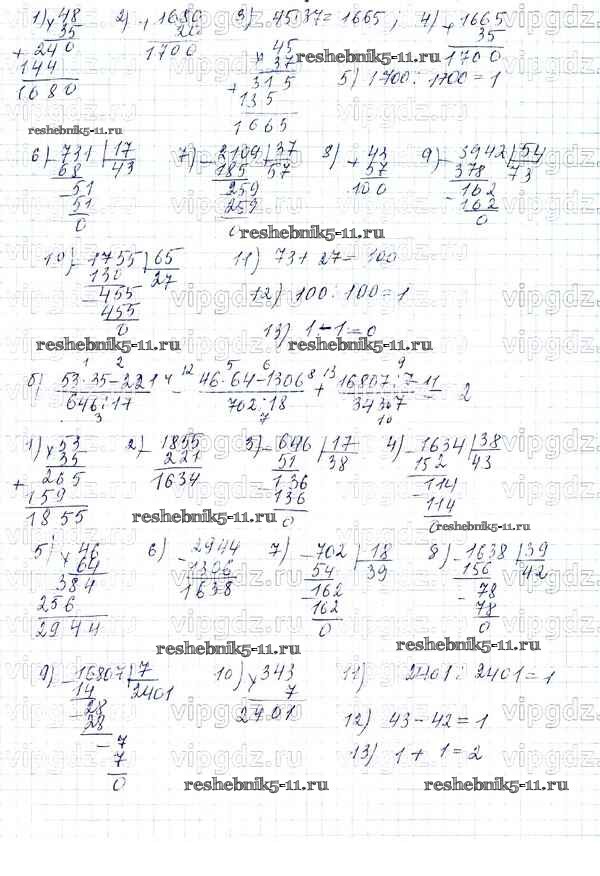 1) × 48 2) + 1680 3) 45·37 = 1665 ; 4) + 1665
35 20 × 45 35
+ 240 1700 37 1700
144 + 315 5) 1700 : 1700 = 1
1680 135
1665
reshebnik5-11.ru
6) - 731 | 17 7) - 2109 | 37 8) + 43 9) - 3942 | 54
68 43 185 57 57 378 73
- 51 - 259 100 - 162
51 259 162
0 0 0
reshebnik5-11.ru
10) - 1755 | 65 11) 73 + 27 = 100
130 27
- 455 12) 100 : 100 = 1
455
0 13) 1 - 1 = 0
reshebnik5-11.ru reshebnik5-11.ru
1 2 4 12 5 6 8 13 9 11
б) 53·35-221 - 46·64-1306 + 16807:7 = 2
646:17 702:18 343·7
3 7 10
1) × 53 2) - 1855 3) - 646 | 17 4) - 1634 | 38
35 221 51 38 152 43
+ 265 1634 - 136 - 114
159 136 114
1855 0 0
reshebnik5-11.ru reshebnik5-11.ru
5) × 46 6) - 2944 7) - 702 | 18 8) - 1638 | 39
64 1306 54 39 156 42
384 1638 - 162 - 78
256 162 78
2944 0 0
reshebnik5-11.ru reshebnik5-11.ru
9) - 16807 | 7 10) × 343 11) 2401 : 2401 = 1
14 2401 7
- 28 2401 12) 43 - 42 = 1
28
- 7 13) 1 + 1 = 2
7
0
reshebnik5-11.ru reshebnik5-11.ru
vipgdz.ru